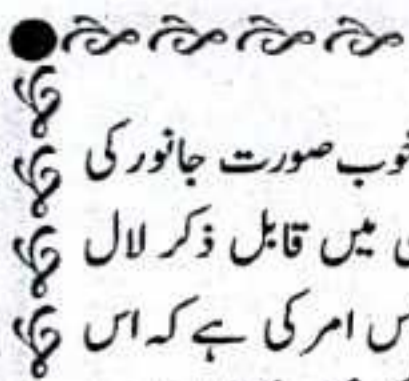 خوب صورت جانور کی
میں قابل ذکر لال
اس امر کی ہے کہ اس